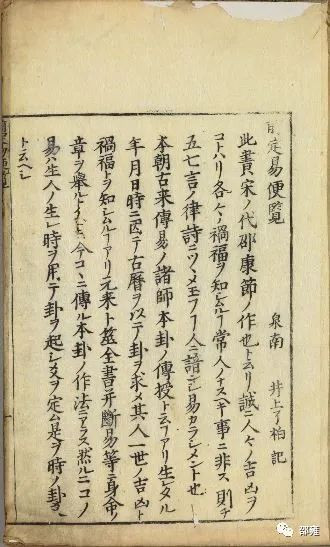 定易便覧
泉南 井上了栢記
此書宋ノ代邵康節ノ作也ト云リ誠ニ人々ノ吉凶ヲ
コトハリ各々禍福ヲ知シムルヿ常人ノナスヘキ事ニ非ス則チ
五七言ノ律詩ニツヽメ玉フヿ人ニ諳シ易カラシメント也
本朝古来傳易ノ諸師本卦ノ傳授ト云フアリ生レタル
年月日時ニ因テ古暦ヲ以テ卦ヲ求メ其人一世ノ吉凶ト
禍福トヲ知シムルヿアリ元来ト茲全書并断易等ニ身命ノ
章ヲ舉ルト云𪜈今コヽニ傳ル本卦ノ作法ニアラス然ルニコノ
易ハ生人ノ生レ時ヲ用テ卦ヲ起シ爻ヲ定ム是ヲ時ノ卦
ト云ヘシ
邵雍